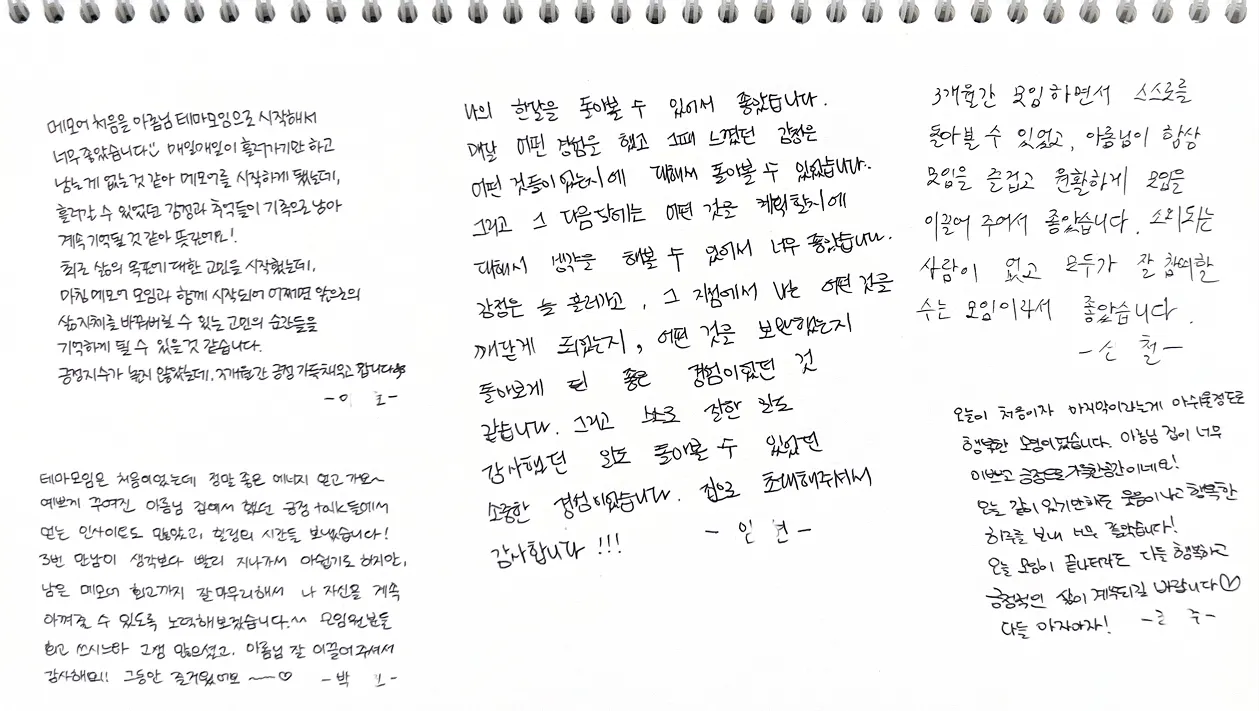 메모어 처음을 아름님 테마모임으로 시작해서
너무 좋았습니다 매일매일이 흘러가기만 하고
남는게 없는 것 같아 메모어를 시작하게 됐는데,
흘러갈 수 있었던 감정과 추억들이 기록으로 남아
계속 기억될 것 같아 뜻깊어요!
최근 삶의 목표에 대한 고민을 시작했는데,
마침 메모어 모임과 함께 시작되어 어쩌면 앞으로의
삶 자체를 바꿔버릴 수 있는 고민의 순간들을
기억하게 될 수 있을 것 같습니다.
긍정지수가 높지 않았는데, 3개월간 긍정 가득 채우고 갑니다
-이
테마모임은 처음이었는데 정말 좋은 에너지 얻고 가요~
예쁘게 꾸며진 아름님 집에서 했던 긍정 talk들에서
얻는 인사이트도 많았고, 힐링의 시간들 보냈습니다!
3번 만남이 생각보다 빨리 지나가서 아쉽기도 하지만,
남은 메모어 회고까지 잘 마무리해서 나 자신을 계속
아껴줄 수 있도록 노력해보겠습니다.^^ 모임원분들
회고 쓰시느라 고생 많으셨고, 아름님 잘 이끌어주셔서
감사해요!! 그동안 즐거웠어요 ~♡ -박
나의 한달을 돌아볼 수 있어서 좋았습니다.
매달 어떤 경험을 했고 그때 느꼈던 감정은
어떤 것들이 있는지에 대해서 돌아볼 수 있었습니다..
그리고 그 다음달에는 어떤 것을 계획할지에
대해서 생각을 해볼 수 있어서 너무 좋았습니다.
감정은 늘 흘러가고, 그 지점에서 나는 어떤 것을
깨닫게 되었는지, 어떤 것을 보완했는지
돌아보게 된 좋은 경험이었던 것
같습니다. 그리고 스스로 잘한 일도
감사했던 일도 돌아볼 수 있었던
소중한 경험이었습니다. 집으로 초대해주셔서
감사합니다!!!
-임 -
3개월간 모임하면서 스스로를
돌아볼 수 있었고, 아름님이 항상
모임을 즐겁고 원활하게 모임을
이끌어 주어서 좋았습니다. 소외되는
사람이 없고 모두가 잘 참여할
수는 모임이라서 좋았습니다.
-신 철-
오늘이 처음이자 마지막이라는게 아쉬울정도로
행복한 모임이었습니다. 아름님 집이 너무
이쁘고 긍정으로 가득한 공간이네요!
오늘 같이 있기만해도 웃음이나고 행복한
하루를 보내 너무 좋았습니다!
오늘 모임이 끝나더라도 다들 행복하고
긍정적인 삶이 계속되길 바랍니다♡
다들 아자아자! 주-